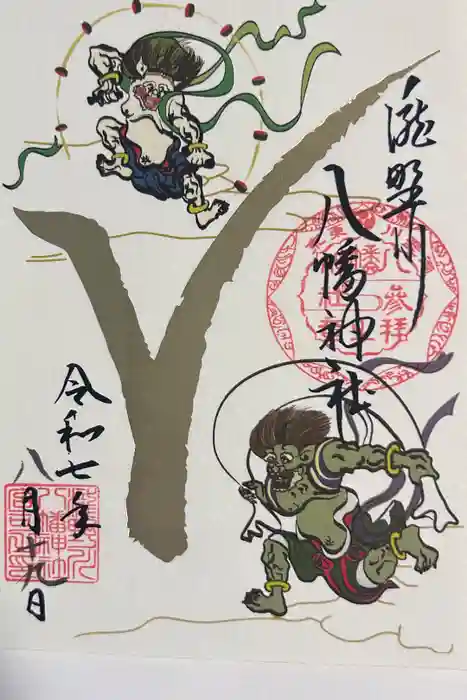 滝野川
八幡神社
令和七年
八月十九日